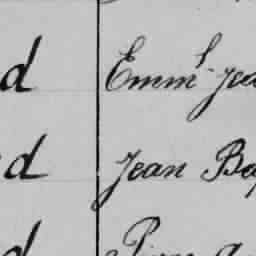 d Emml Jea
d Jean Bap
d